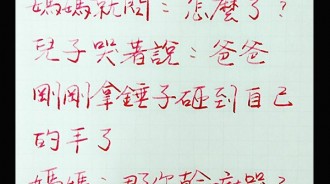 媽媽就問：怎麼了？
兒子哭著說：爸爸
剛剛拿錘子砸到自己
的手了
媽媽：那你幹嘛哭？